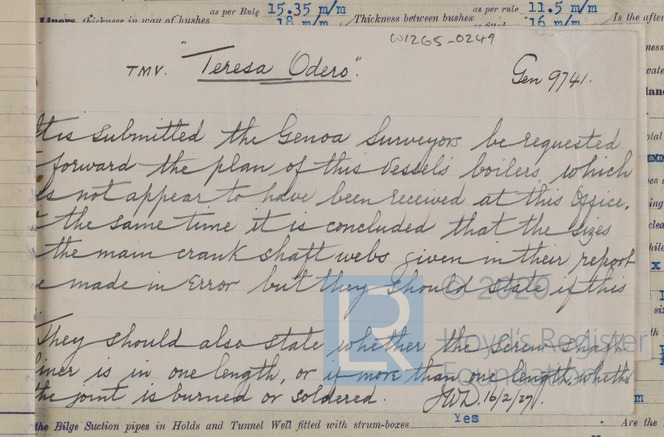 as per Rule 15.35 m/m as per rule 11.5 m/m
Liners, thickness in way of bushes 18 m/m Thickness between bushes 16 m/m Is the after
W1265-0249
TMV. "Teresa Odero". Gen 9741.
It is submitted the Genoa Surveyors be requested
forward the plan of this vessel's boilers, which
not appear to have been received at this Office.
the same time it is concluded that the sizes
the main crank shaft webs given in their report
made in error but they should state if this
© 2020
Lloyd's Register
Foundation
They should also state whether the screw shaft
liner is in one length, or if more than one length, whether
the joint is burned or soldered. 16/2/27.
Yes
the Bilge Suction pipes in Holds and Tunnel Well fitted with strum-boxes Are the